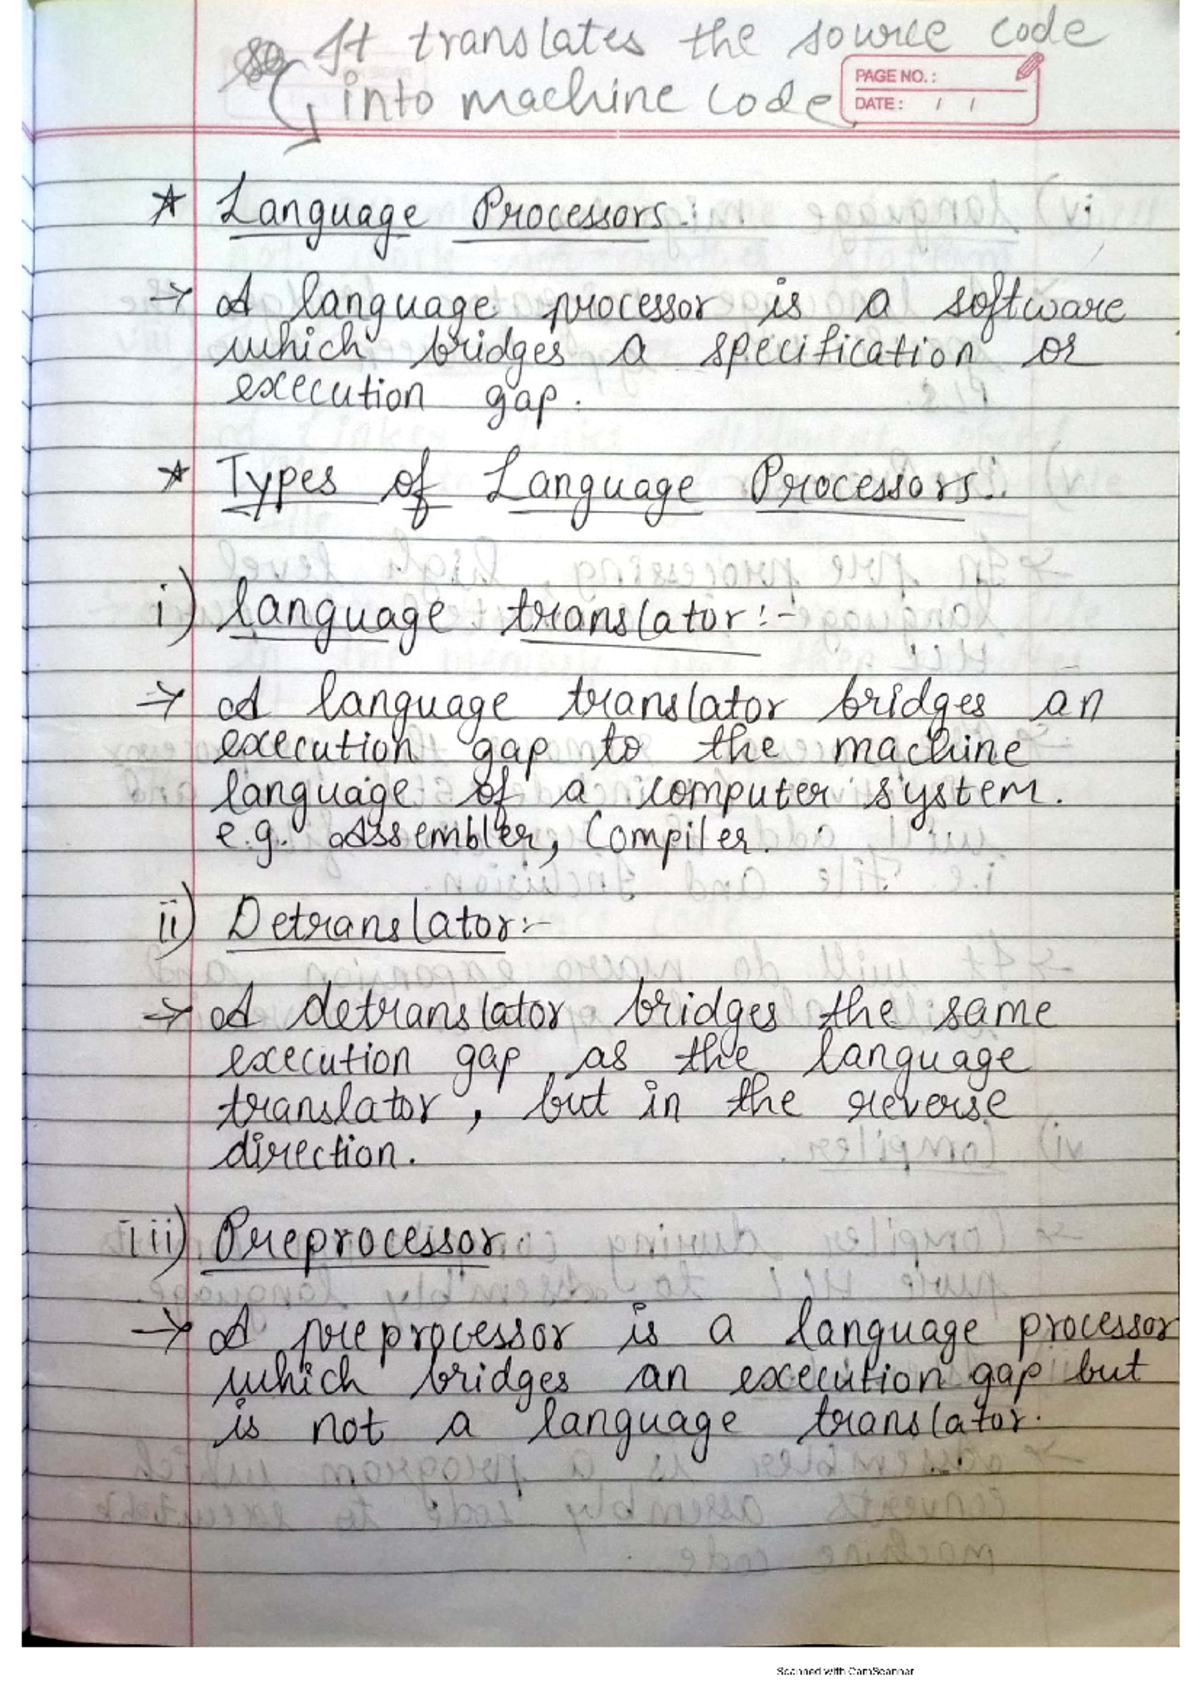 It translates the source code
into machine code
PAGE NO.:
DATE: / /
* Language Processors.
→ A language processor is a software
which bridges a specification or
execution gap.
* Types of Language Processors:
i) language translator:-
→ A language translator bridges an
execution gap to the machine
language of a computer system.
e.g. Assembler, Compiler.
ii) Detranslator:-
→ A detranslator bridges the same
execution gap as the language
translator, but in the reverse
direction.
iii) Preprocessor.
→ A preprocessor is a language processor
which bridges an execution gap but
is not a language translator.
Scanned with CamScanner